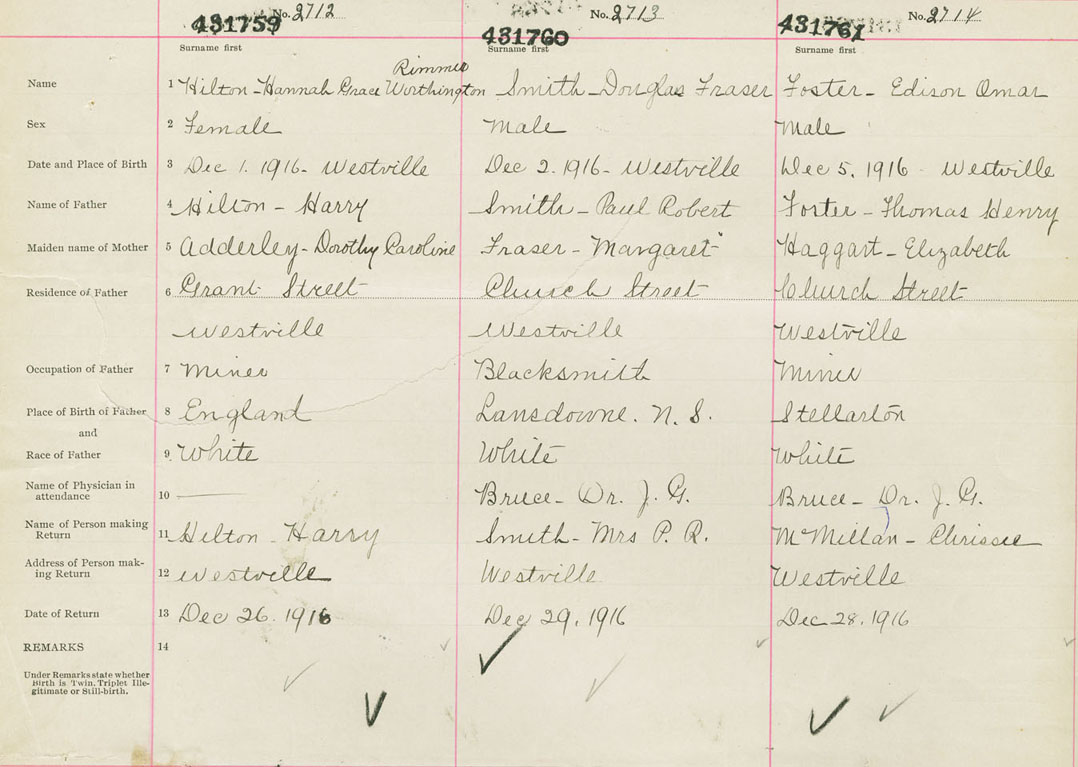 No. 2712 No. 2713 No. 2714
431759 431760 431761
Surname first Surname first Surname first
Rimmer
Name 1 Hilton - Hannah Grace Worthington Smith - Douglas Fraser Foster - Edison Omar
Sex 2 Female Male Male
Date and Place of Birth 3 Dec 1. 1916 - Westville Dec 2. 1916 - Westville Dec 5. 1916 - Westville
Name of Father 4 Hilton - Harry Smith - Paul Robert Foster - Thomas Henry
Maiden name of Mother 5 Adderley - Dorothy Caroline Fraser - Margaret Haggart - Elizabeth
Residence of Father 6 Grant Street Church Street Church Street
Westville Westville Westville
Occupation of Father 7 Miner Blacksmith Miner
Place of Birth of Father 8 England Lansdowne. N. S. Stellarton
and
Race of Father 9 White White White
Name of Physician in
attendance 10 — Bruce - Dr. J. G. Bruce - Dr. J. G.
Name of Person making
Return 11 Hilton - Harry Smith - Mrs P. R. McMillan - Chrissie
Address of Person mak-
ing Return 12 Westville Westville Westville
Date of Return 13 Dec 26. 1916 Dec 29. 1916 Dec 28. 1916
REMARKS 14
Under Remarks state whether
Birth is Twin, Triplet Ille-
gitimate or Still-birth.